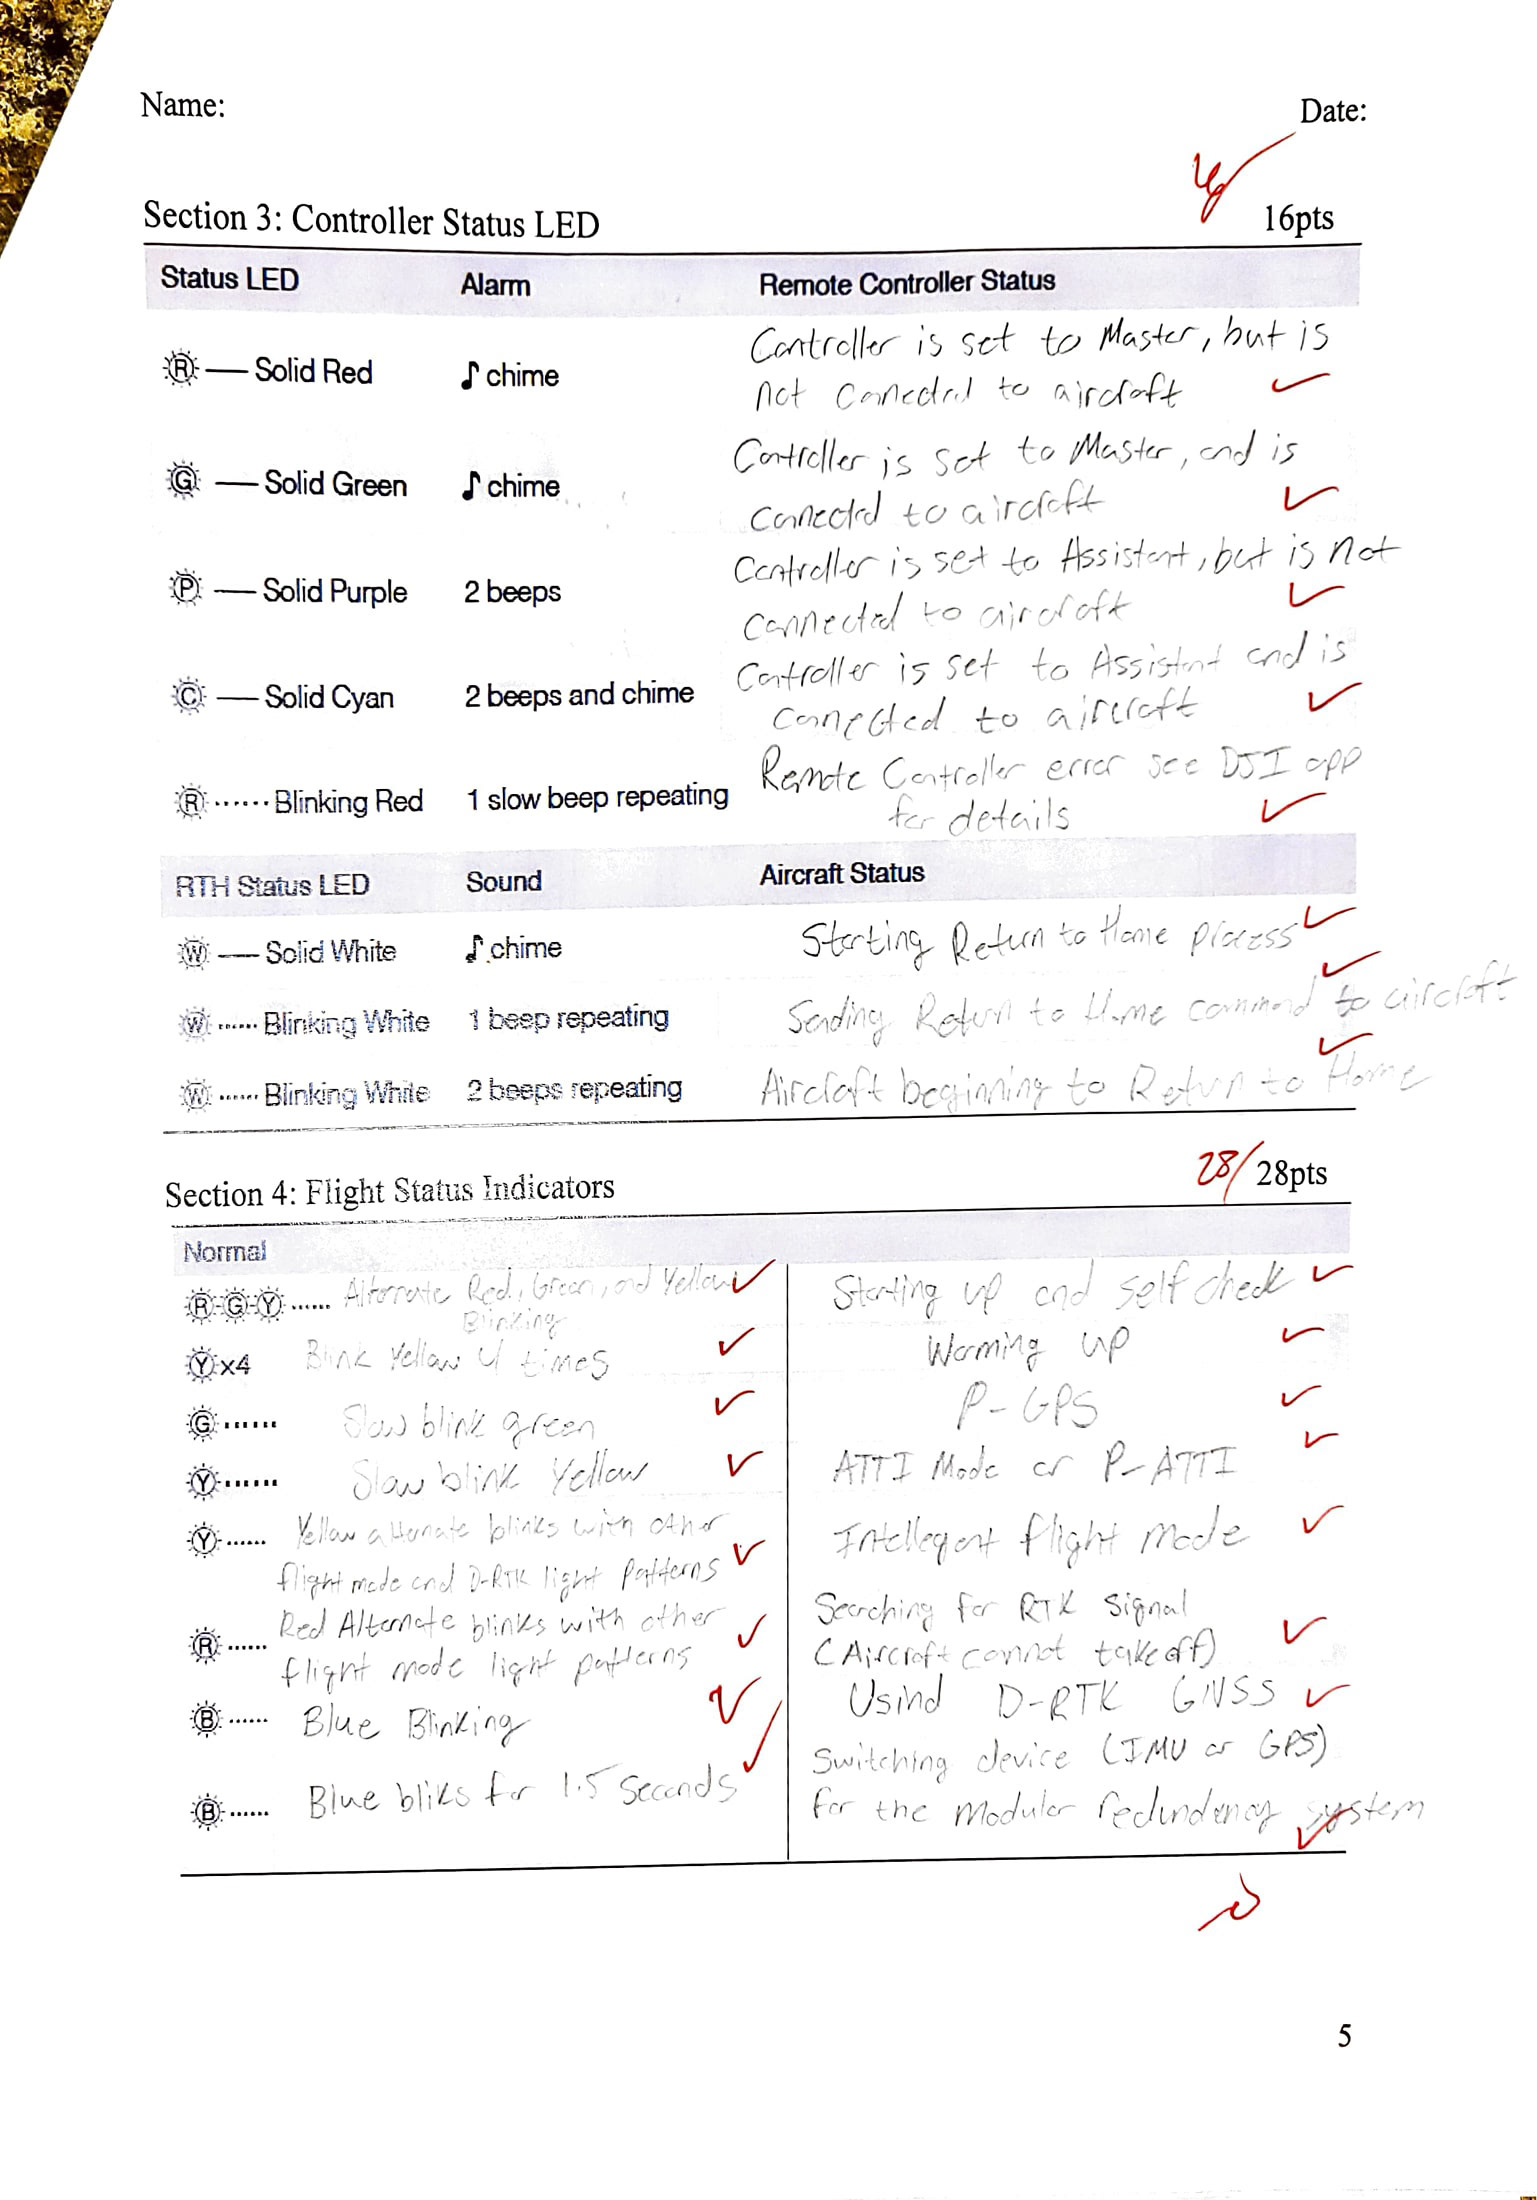 Name:
Date:
Section 3: Controller Status LED
16pts
Status LED Alarm Remote Controller Status
Controller is set to Master, but is
R — Solid Red ♪ chime
not conected to aircraft ✓
Controller is set to Master, and is
G — Solid Green ♪ chime
connected to aircraft ✓
Controller is set to Assistant, but is not
P — Solid Purple 2 beeps
connected to aircraft ✓
Controller is set to Assistant and is
C — Solid Cyan 2 beeps and chime
connected to aircraft ✓
Remote Controller error see DJI app
R ······ Blinking Red 1 slow beep repeating
for details ✓
RTH Status LED Sound Aircraft Status
W — Solid White ♪ chime Starting Return to Home process ✓
W ······ Blinking White 1 beep repeating Sending Return to Home command to aircraft ✓
W ······ Blinking White 2 beeps repeating Aircraft beginning to Return to Home ✓
Section 4: Flight Status Indicators
28/28pts
Normal
R-G-Y ······ Alternate Red, Green, and Yellow ✓ Starting up and self check ✓
Blinking
Y x4 Blink Yellow 4 times ✓ Warming up ✓
G ······ Slow blink green ✓ P-GPS ✓
Y ······ Slow blink Yellow ✓ ATTI Mode or P-ATTI ✓
Y ······ Yellow alternate blinks with other
flight mode and D-RTK light patterns ✓
Intellegent flight mode ✓
R ······ Red Alternate blinks with other
flight mode light patterns ✓
Searching for RTK signal
(Aircraft cannot takeoff) ✓
B ······ Blue Blinking ✓ Usind D-RTK GNSS ✓
B ······ Blue bliks for 1.5 seconds ✓
Switching device (IMU or GPS)
for the modular redundency system ✓
5